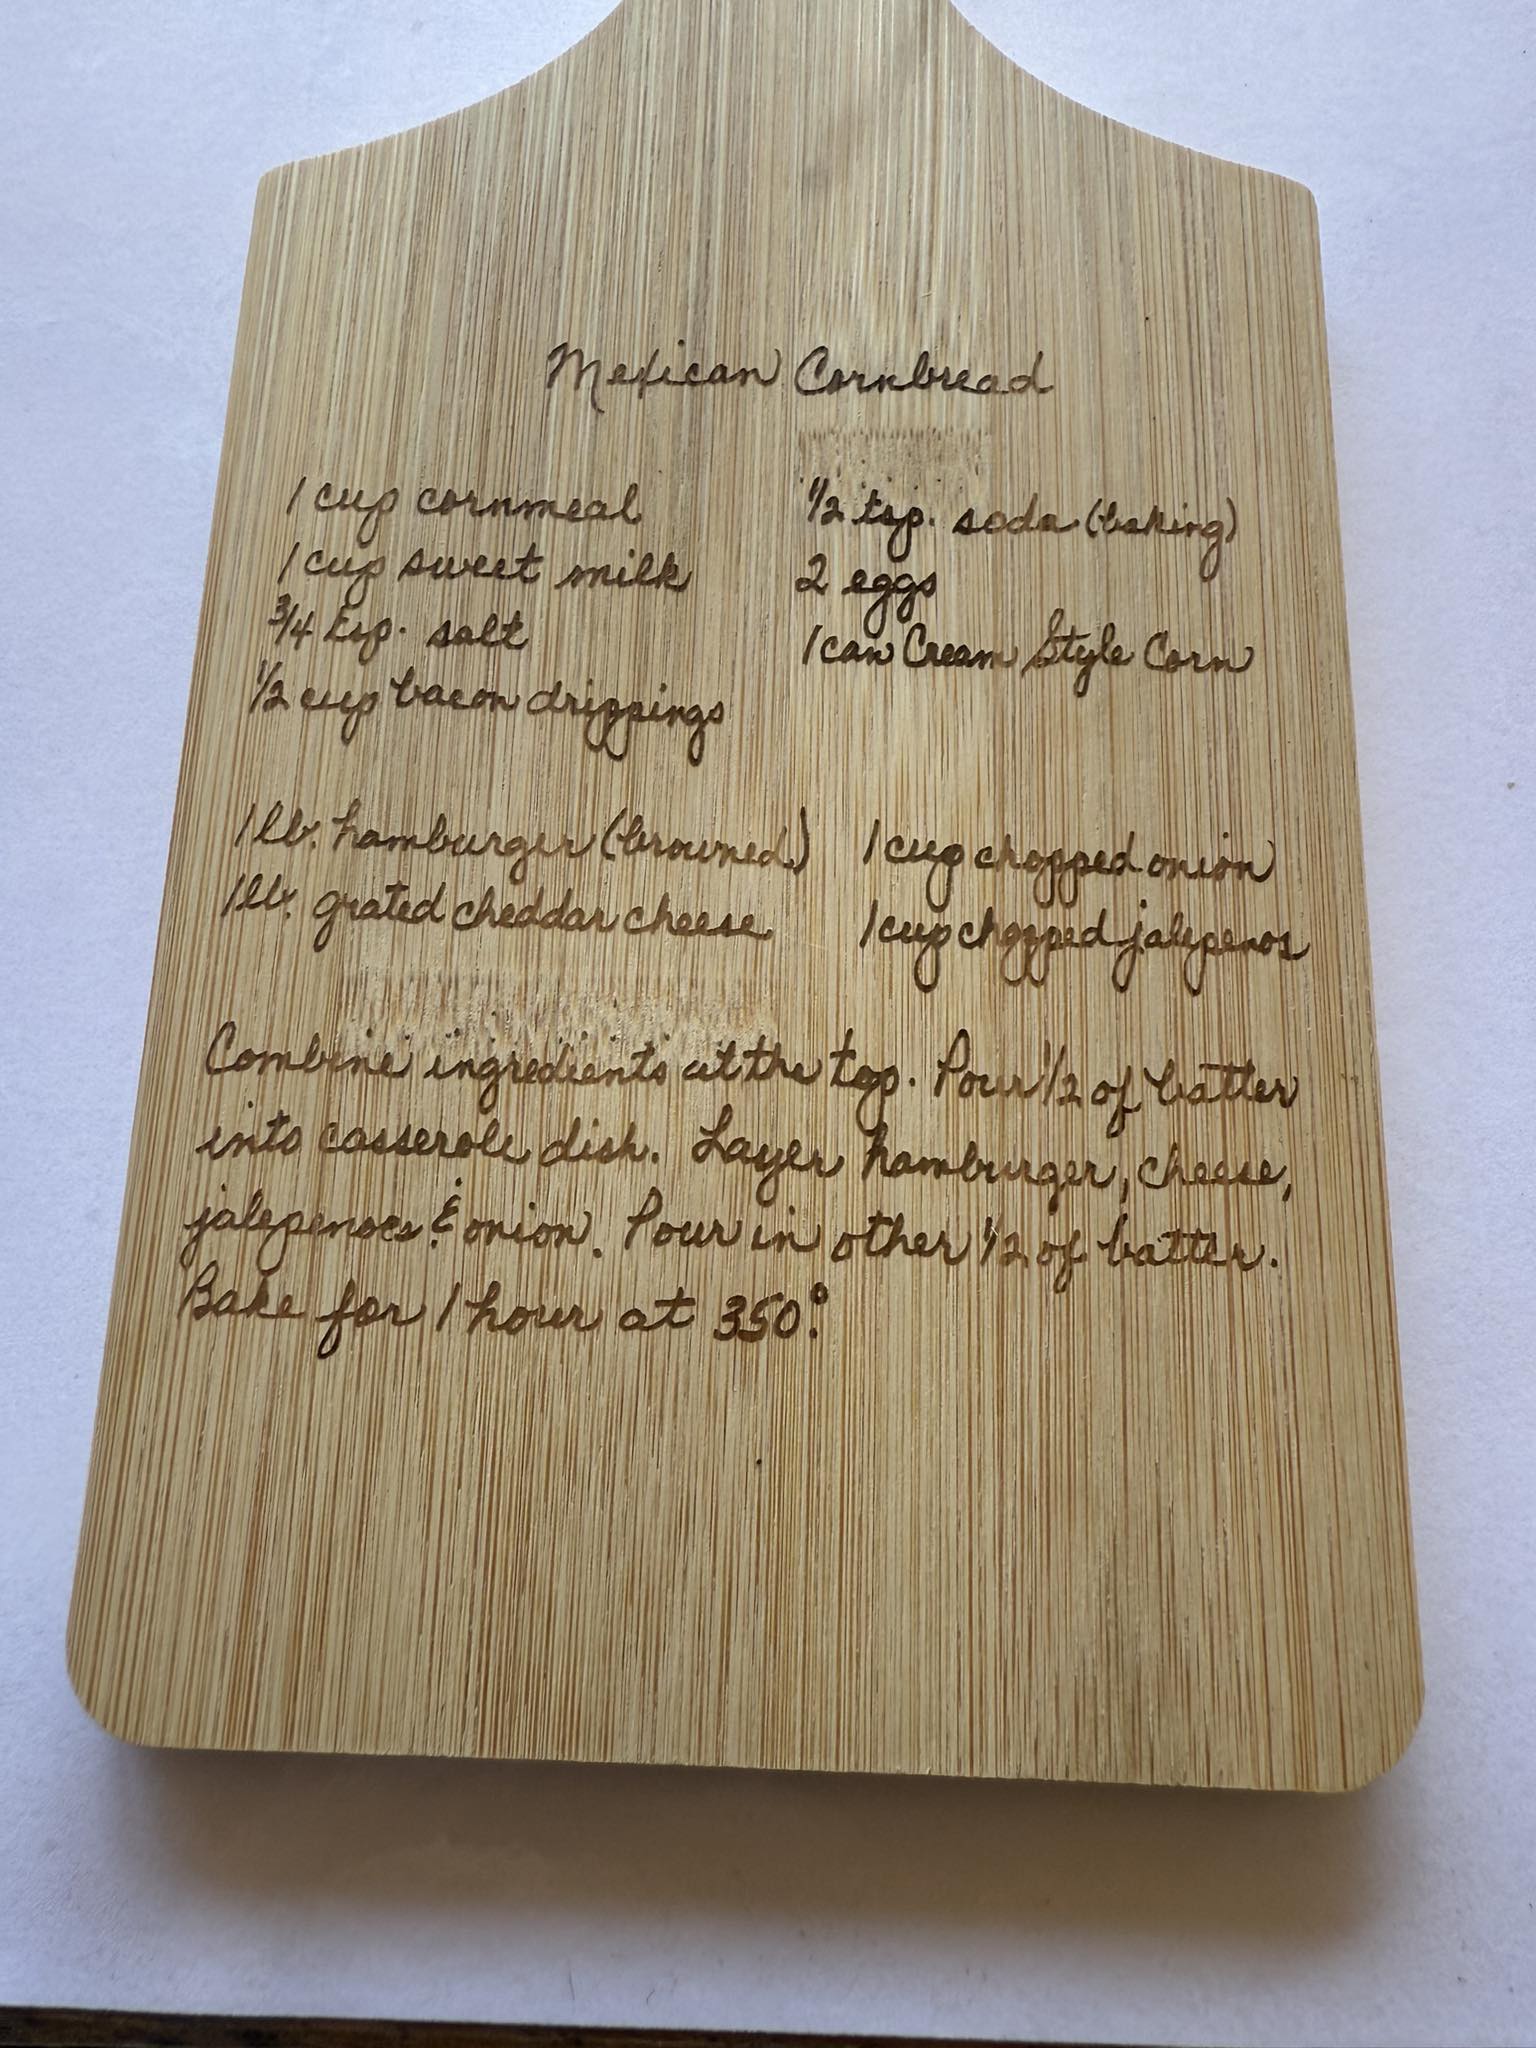 Mexican Cornbread
1 cup cornmeal
1 cup sweet milk
3/4 tsp. salt
1/2 cup bacon drippings
1/2 tsp. soda (baking)
2 eggs
1 can Cream Style Corn
1 lb. hamburger (browned)
1 lb. grated cheddar cheese
1 cup chopped onion
1 cup chopped jalepenos
Combine ingredients at the top. Pour 1/2 of batter
into casserole dish. Layer hamburger, cheese,
jalepenoes & onion. Pour in other 1/2 of batter.
Bake for 1 hour at 350°.